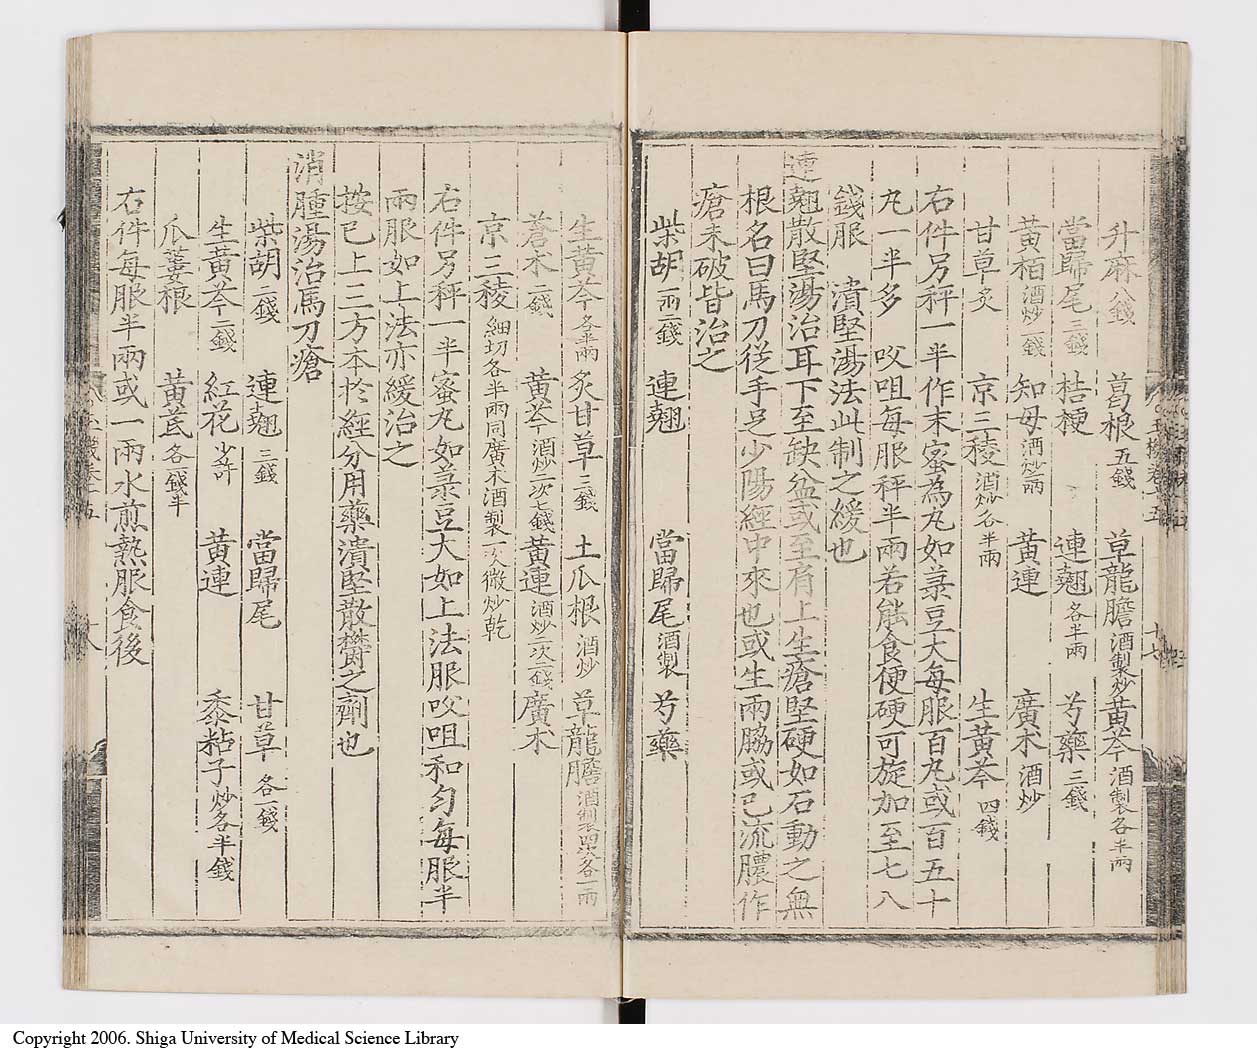 升麻八錢 葛根五錢 草龍膽酒製炒黃芩酒製各半兩
當歸尾三錢 桔梗 連翹各半兩 芍藥三錢
黃栢酒炒二錢 知母酒炒兩 黃連 廣朮酒炒
甘草炙 京三稜酒炒各半兩 生黃芩四錢
右件另秤一半作末蜜為丸如菉豆大每服百丸或百五十
丸一半多㕮咀每服秤半兩若能食便硬可旋加至七八
錢服 潰堅湯法此制之緩也
連翹散堅湯治耳下至缺盆或至肩上生瘡堅硬如石動之無
根名曰馬刀從手足少陽經中來也或生兩脇或已流膿作
瘡未破皆治之
柴胡一兩二錢 連翹 當歸尾酒製 芍藥
生黃芩各半兩 炙甘草三錢 土瓜根酒炒 草龍膽酒製四次各一兩
蒼朮二錢 黃芩酒炒二次七錢 黃連酒炒二次二錢 廣朮
京三稜細切各半兩同廣朮酒製一次微炒乾
右件另秤一半蜜丸如菉豆大如上法服㕮咀和勻每服半
兩服如上法亦緩治之
按已上三方本於經分用藥潰堅散欝之劑也
消腫湯治馬刀瘡
柴胡二錢 連翹三錢 當歸尾 甘草各一錢
生黃芩二錢 紅花少許 黃連 黍粘子炒各半錢
瓜蔞根 黃芪各一錢半
右件每服半兩或一兩水煎熱服食後
十八
Copyright 2006. Shiga University of Medical Science Library